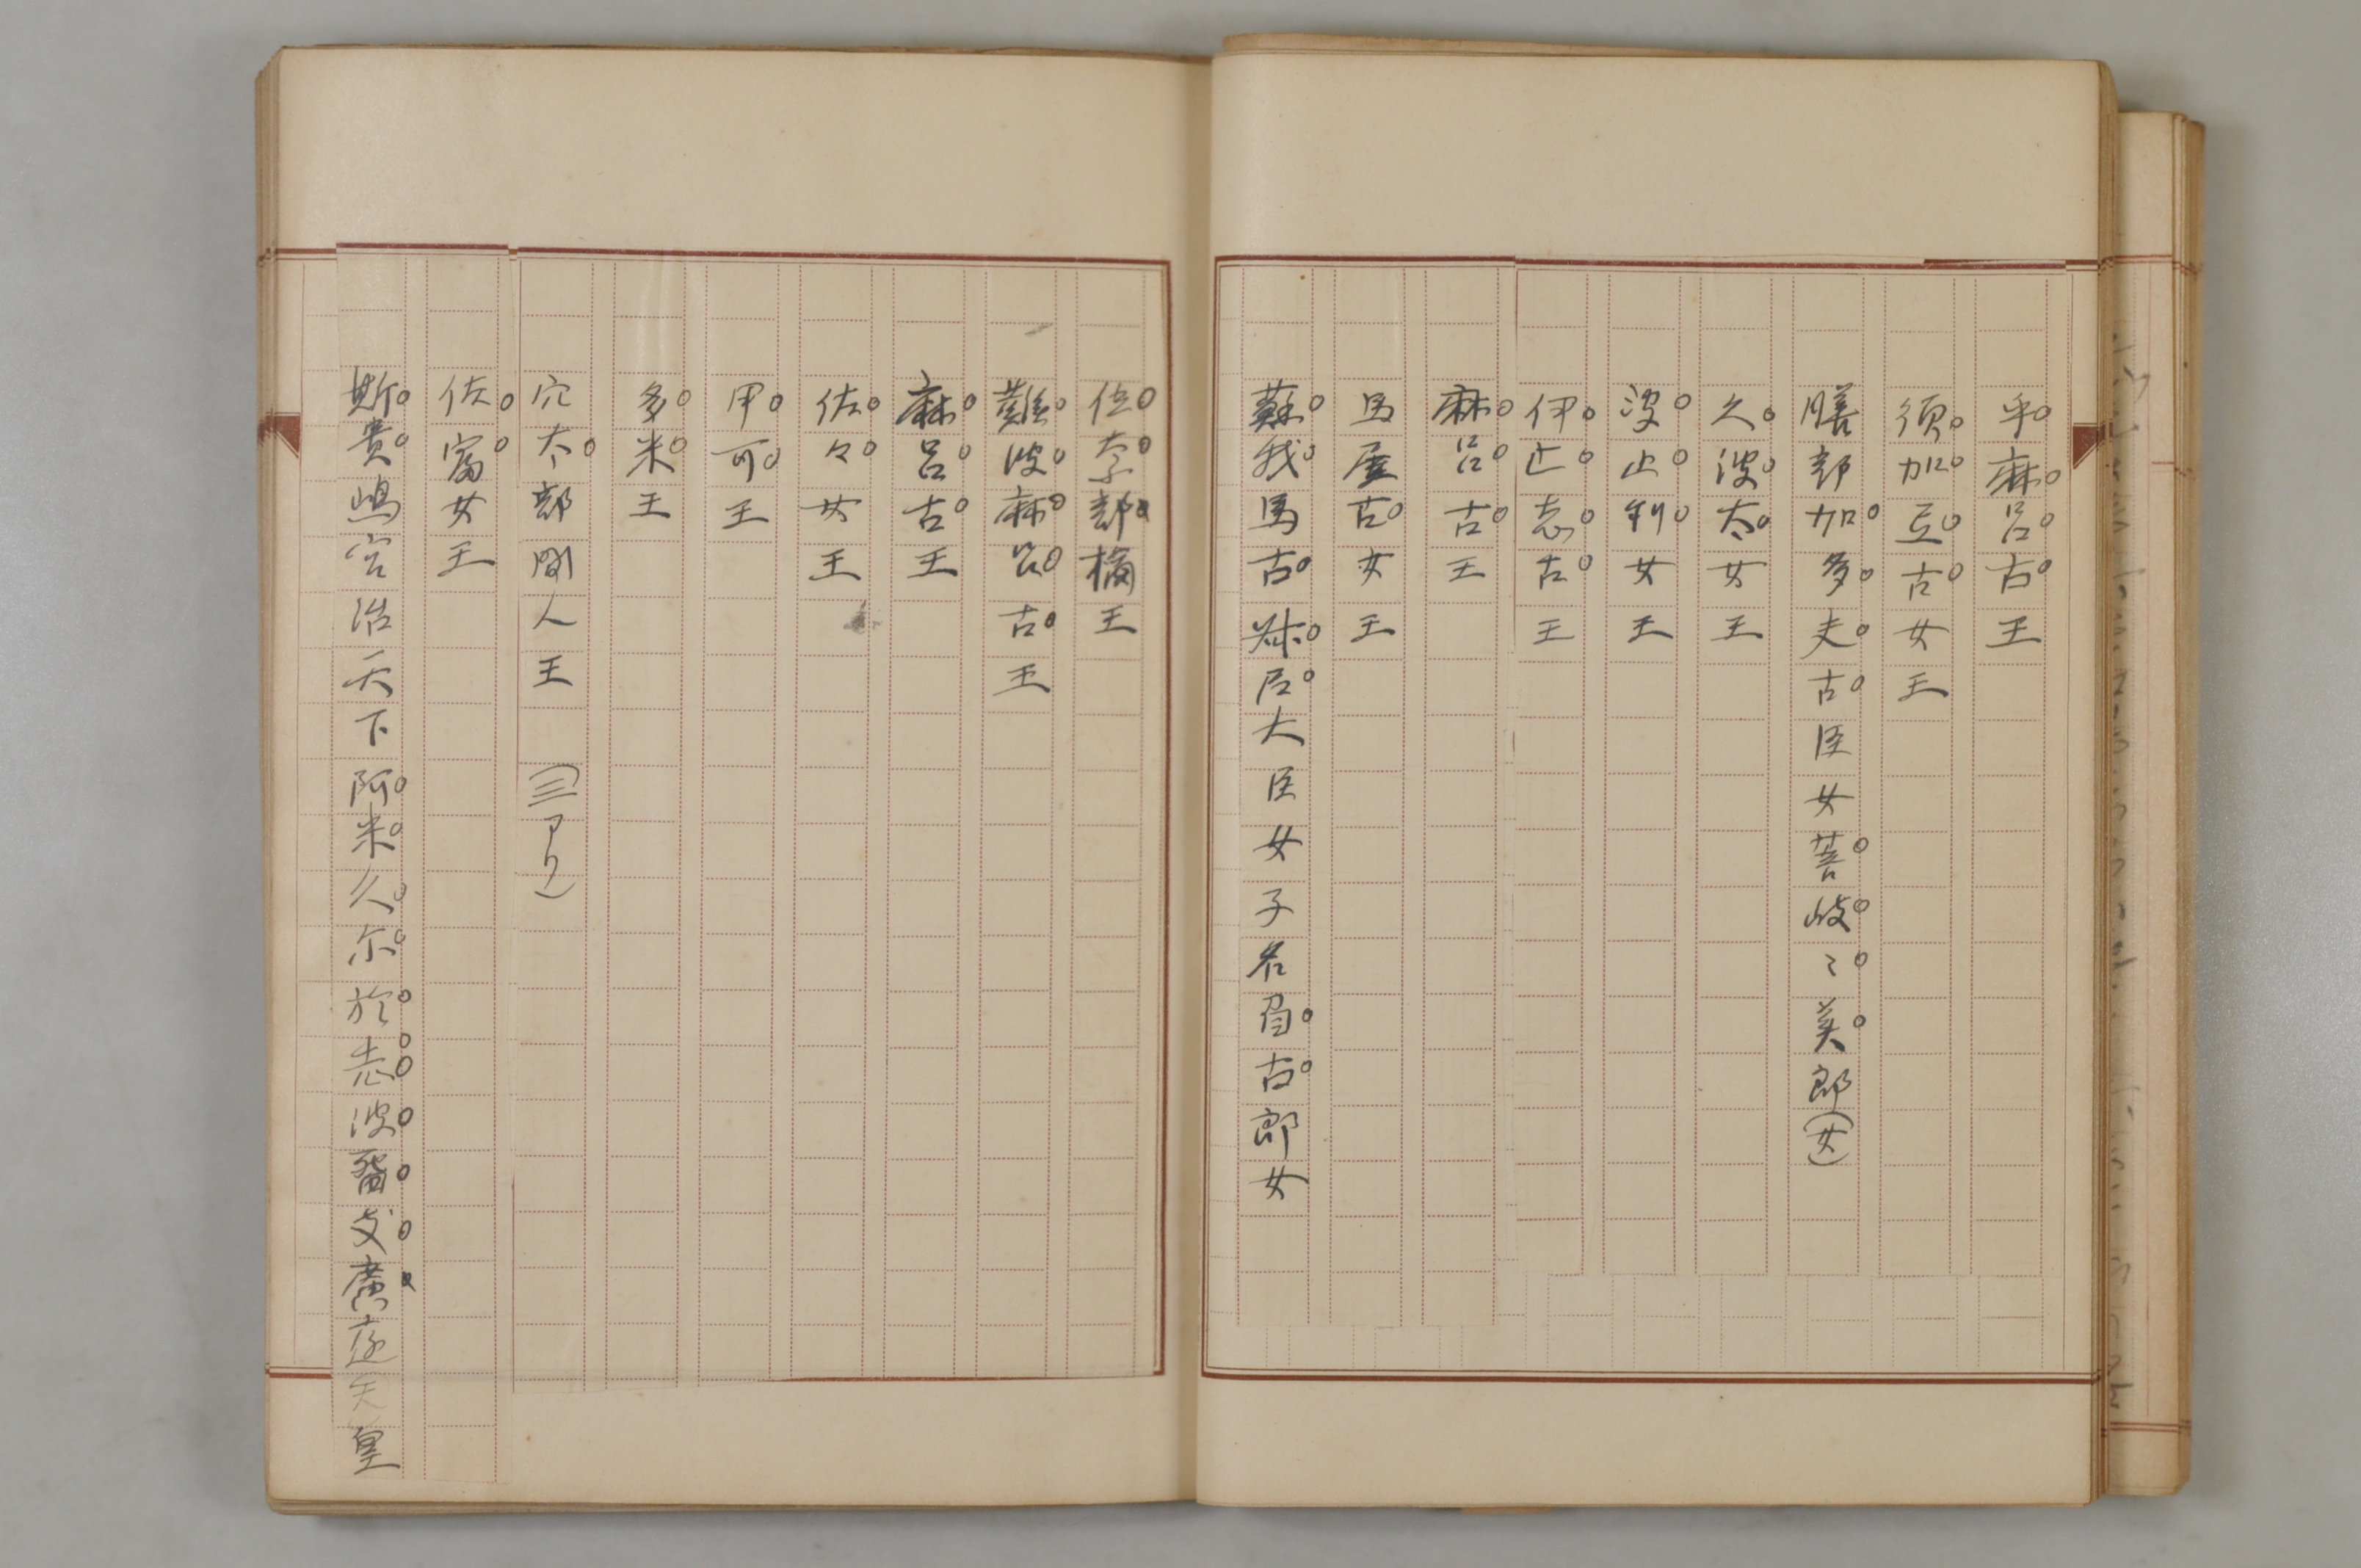 乎麻呂古王
須加弖古女王
膳部加多夫古臣女菩岐〻美郎(女)
久波太女王
波止利女王
伊止志古王
麻呂古王
馬屋古女王
蘇我馬古叔尼大臣女子名刀自古郎女
位奈部橘王
難波麻呂古王
麻呂古王
佐々女王
甲可王
多米王
穴太部間人王 (三アリ)
佐富女王
斯貴嶋宮治天下阿米久尓於志波留支廣庭天皇